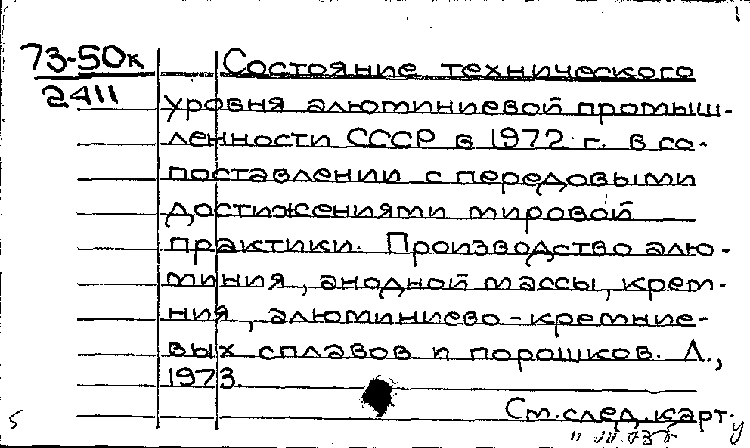 73-50к
2411
Состояние технического
уровня алюминиевой промыш-
ленности СССР в 1972 г. в со-
поставлении с передовыми
достижениями мировой
практики. Производство алю-
миния, анодной массы, крем-
ния, алюминиево-кремние-
вых сплавов и порошков. Л.,
1973.
См. след. карт.
5